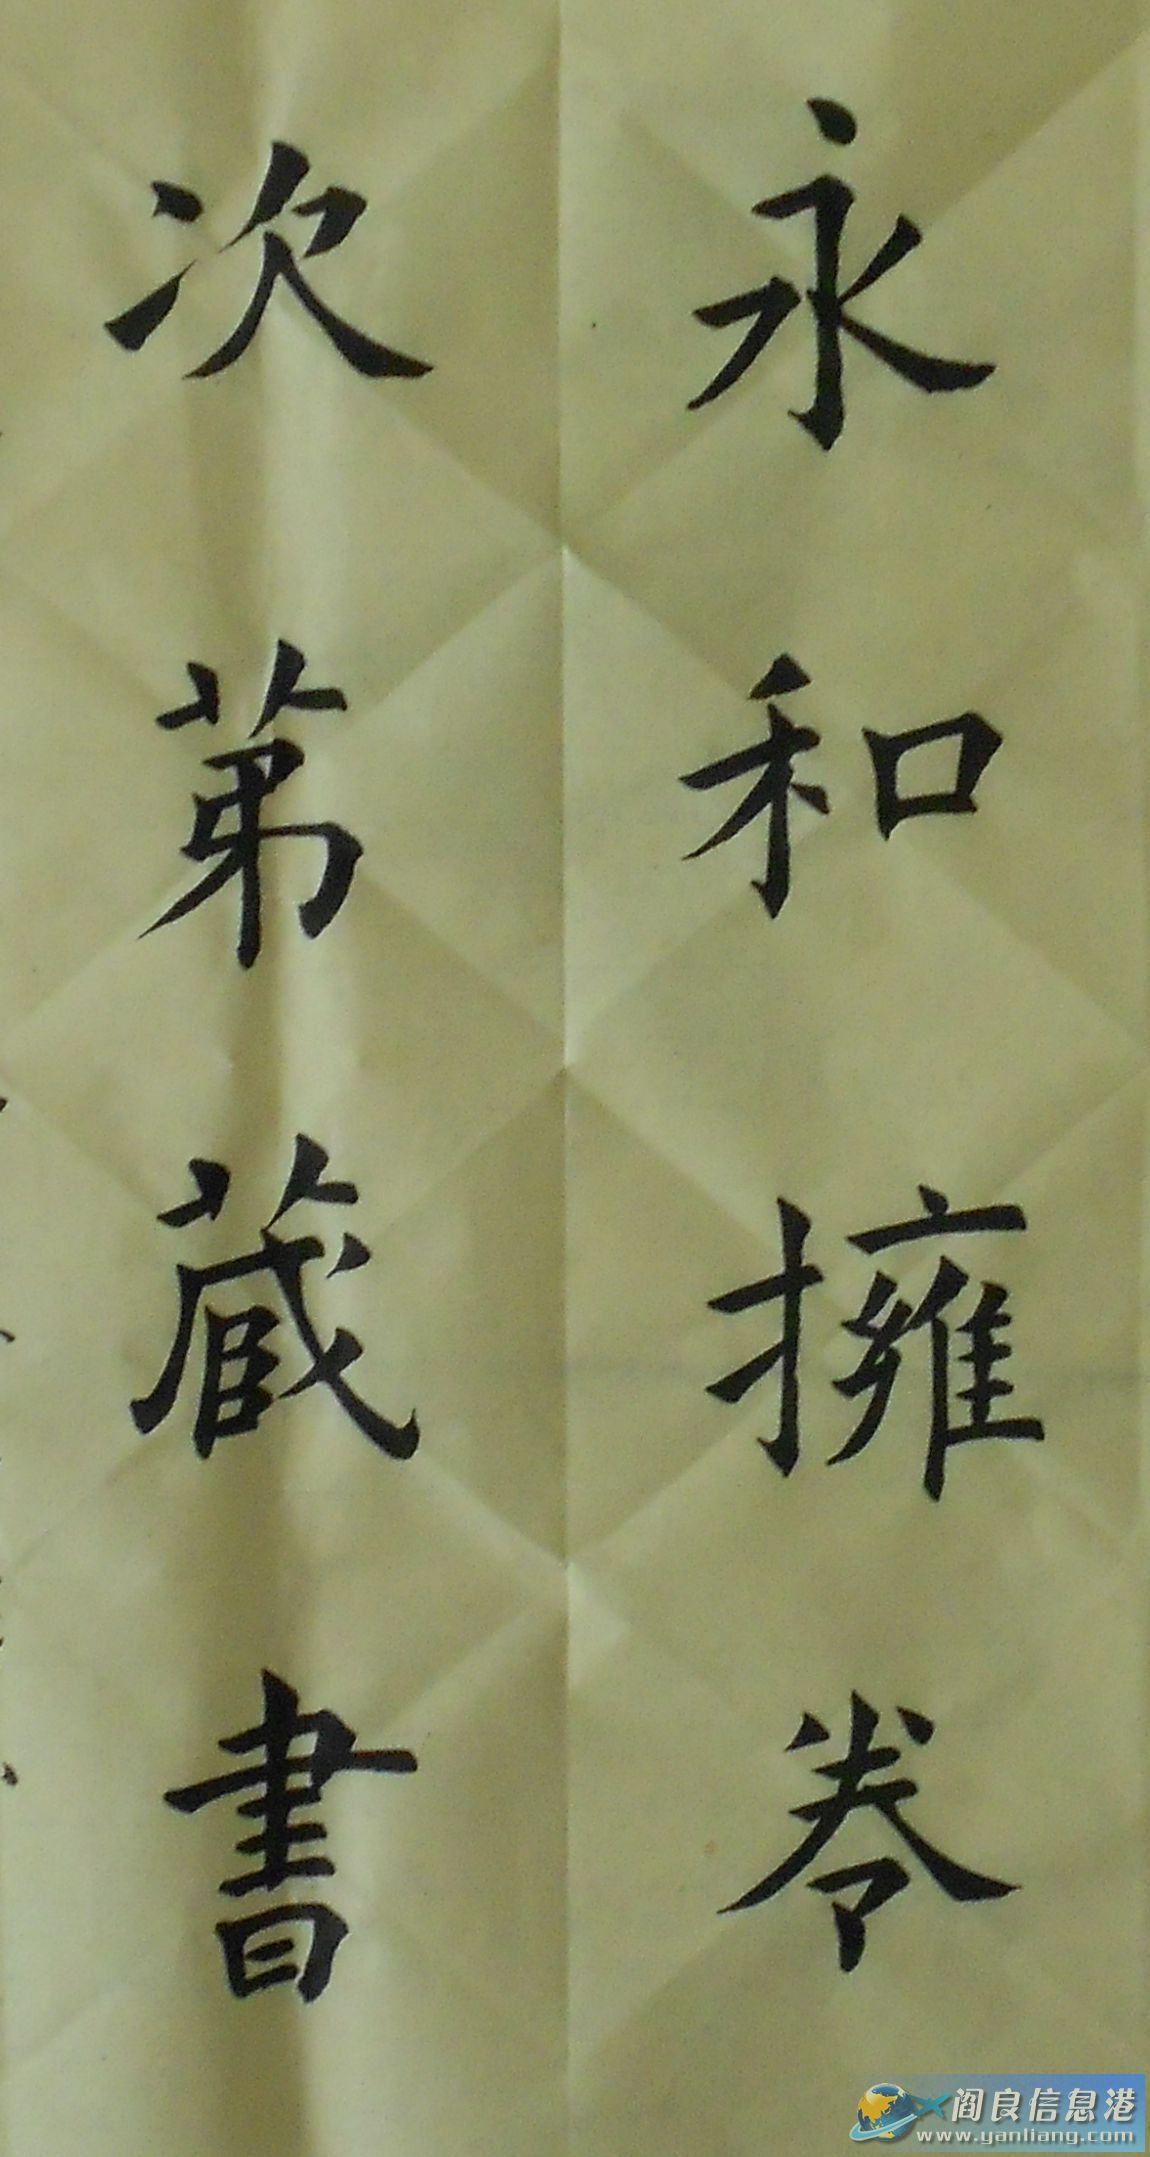 永和擁卷
次苐蔵書
阎良信息港
www.yanliang.com